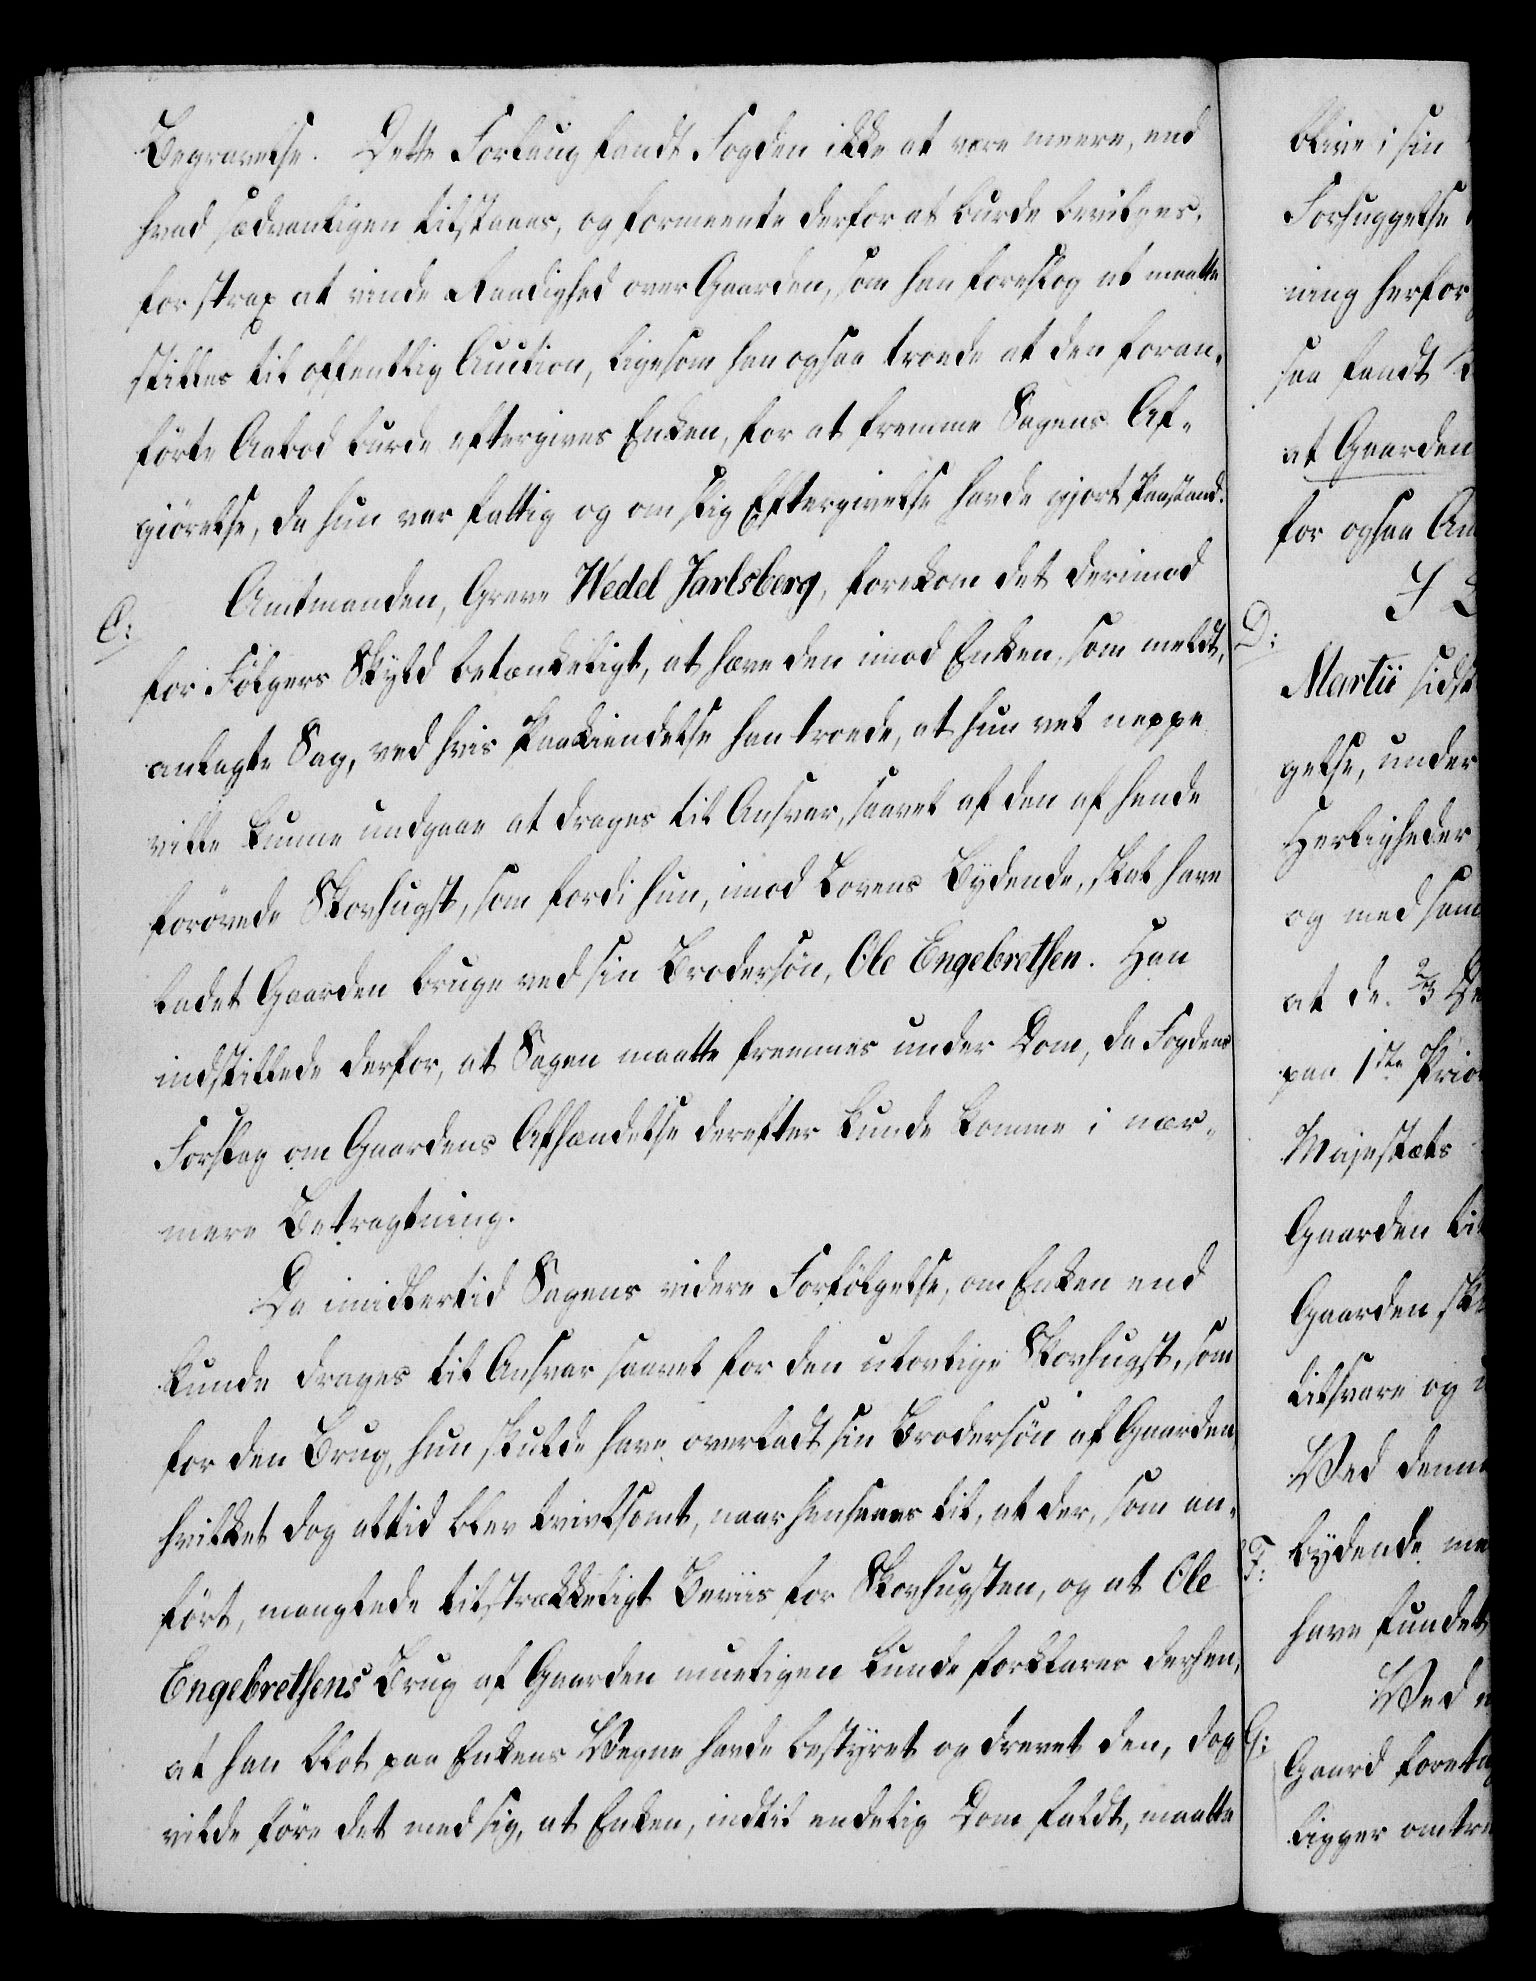 Begravelse. Dette Forlang fandt Fogden ikke at være meere, end
hvad sædvanligen tilstaaes, og formeente derfor at burde bevilges,
for strax at vinde Raadighed over Gaarden, som han foreslog at maatte
stilles til offentlig Auction, ligesom han ogsaa troede at den foran-
förte Aabod burde eftergives Enken, for at fremme Sagens Af-
giörelse, da hun var fattig og om slig Eftergivelse havde gjort Paastand.
C:
Amtmanden, Greve Wedel Jarlsberg, forekom det derimod
for Fölgers Skyld betænkeligt, at hæve den imod Enken, som meldt,
anlagte Sag, ved hvis Paakiendelse han troede, at hun vel neppe
vilde kunne undgaae at drages til Ansvar, saavel af den af hende
forövede Skovhugst, som fordi hun, imod Lovens Bydende, skal have
ladet Gaarden bruge ved sin Brodersön, Ole Engebrethsen. Han
indstillede derfor, at Sagen maatte fremmes under Dom, da Fogdens
Forslag om Gaardens Afhændelse derefter kunde komme i nær-
mere Betragtning.
Da imidlertid Sagens videre Forfölgelse, om Enken end
kunde drages til Ansvar saavel for den ulovlige Skovhugst, som
for den Brug, hun skulde have overladt sin Brodersön af Gaarden,
hvilket dog altid blev tvivlsomt, naar hensaaes til, at der, som an-
fört, manglede tilstrækkeligt Beviis for Skovhugsten, og at Ole
Engebrethsens Brug af Gaarden mueligen kunde forklares derhen,
at han blot paa Enkens Vegne havde bestyret og drevet den, dog
vilde före det med sig, at Enken, indtil endelig Dom faldt, maatte
blive i sin
Forhuggelse
ning herfor
saa fandt
at Gaarden
for ogsaa Am
D:
Martii sidst
gelse, under
Herligheder
og med sam
at de 2/3 De
paa 1ste Prio
Majestæts
Gaarden til
Gaarden sk
tilsvare og
Ved denne
F:
bydende me
have fundet
Ved
G:
Gaard foretag
ligger omtre